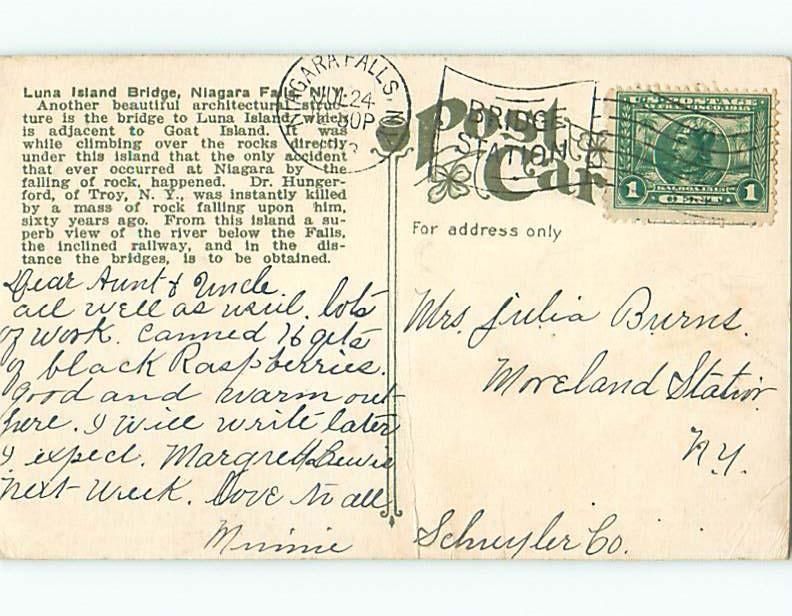 Luna Island Bridge, Niagara Falls, N. Y.
Another beautiful architectural struc-
ture is the bridge to Luna Island, which
is adjacent to Goat Island. It was
while climbing over the rocks directly
under this island that the only accident
that ever occurred at Niagara by the
falling of rock, happened. Dr. Hunger-
ford, of Troy, N. Y., was instantly killed
by a mass of rock falling upon him,
sixty years ago. From this island a su-
perb view of the river below the Falls,
the inclined railway, and in the dis-
tance the bridges, is to be obtained.
Dear Aunt & Uncle.
all well as usul. lots
of work. Canned 16 qets
of black Raspberries.
good and warm out
here. I will write later
I expect. Margrett Lewis
next week. Love to all
Minnie
NIAGARA FALLS, N.Y.
JUL 24
30P
BRIDGE
STATION
Post
Car
1 CENT 1
For address only
Mrs. Julia Burns.
Moreland Station
N.Y.
Schuyler Co.